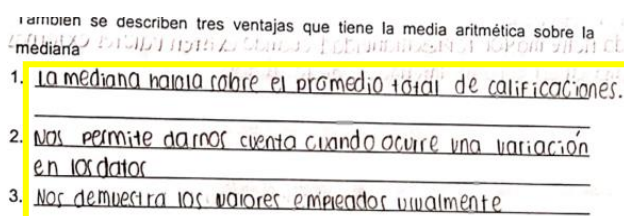 También se describen tres ventajas que tiene la media aritmética sobre la
mediana
1. La mediana habla sobre el promedio total de calificaciones.
2. Nos permite darnos cuenta cuando ocurre una variación
en los datos
3. Nos demuestra los valores empleados usualmente